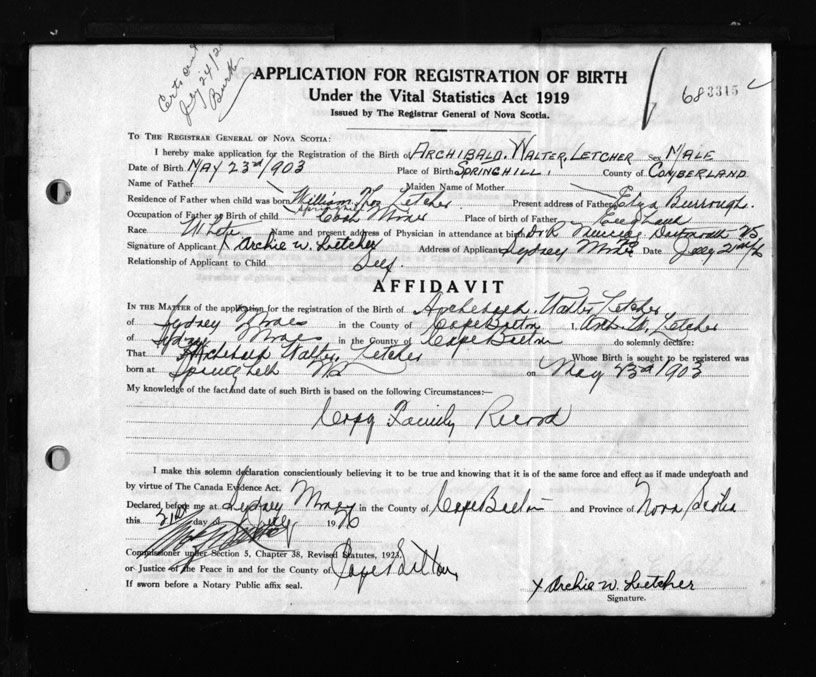 APPLICATION FOR REGISTRATION OF BIRTH
Under the Vital Statistics Act 1919
Issued by The Registrar General of Nova Scotia.
683315
TO THE REGISTRAR GENERAL OF NOVA SCOTIA:
I hereby make application for the Registration of the Birth of ARCHIBALD. WALTER. LETCHER Sex MALE
Date of Birth MAY 23rd/1903 Place of Birth SPRINGHILL, County of CUMBERLAND
Name of Father Maiden Name of Mother
Residence of Father when child was born William Letcher Present address of Father Burrough.
Occupation of Father at Birth of child Place of birth of Father
Race White Name and present address of Physician in attendance at birth Dr
Signature of Applicant X Archie W. Letcher Address of Applicant Sydney Mines Date
Relationship of Applicant to Child Self.
AFFIDAVIT
IN THE MATTER of the application for the registration of the Birth of Walter Letcher
of Sydney Mines in the County of Cape Breton I, Letcher
of Sydney Mines in the County of Cape Breton do solemnly declare:
That Walter. Letcher Whose Birth is sought to be registered was
born at on May 23rd 1903
My knowledge of the fact and date of such Birth is based on the following Circumstances:—
Copy Family Record
I make this solemn declaration conscientiously believing it to be true and knowing that it is of the same force and effect as if made under oath and
by virtue of The Canada Evidence Act.
Declared before me at Sydney Mines in the County of Cape Breton and Province of Nova Scotia
this 21st day of 19
Commissioner under Section 5, Chapter 38, Revised Statutes, 1923,
or Justice of the Peace in and for the County of Cape Breton
If sworn before a Notary Public affix seal.
X Archie W. Letcher
Signature.